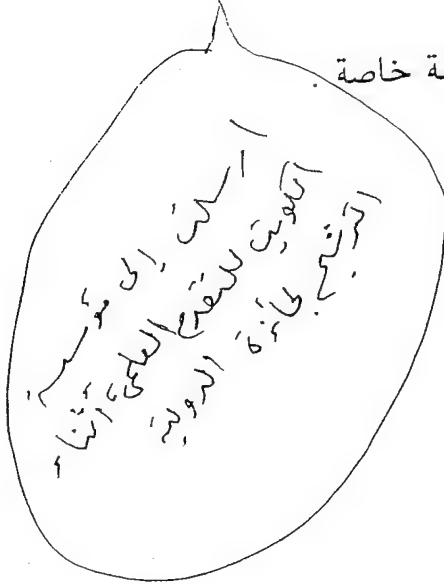 ة خاصة
أرسلت إلى مؤسسة
الكويت للتقدم العلمى أثناء
الترشيح لجائزة الدولية